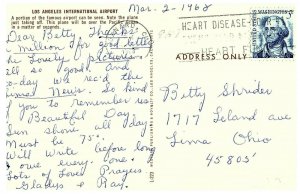 Mar-2-1968
LOS ANGELES INTERNATIONAL AIRPORT
A portion of the famous airport can be seen. Note the plane
just taking off. This plane will be over the Pacific Ocean in
a matter of seconds.
Dear Betty, Thanks
a million for good letter
the lovely pictures
all so good. And
to-day we rec'd the
News. So kind
of you to remember us
Beautiful Day
Sun shone all day
Must be 75°.
Will write before long
to one & every one.
Lots of Love & Prayers
Gladys & Ray.
HEART DISEASE
HEART F
ADDRESS ONLY
Betty Shrider
1717 Leland Ave
Lima Ohio
45805